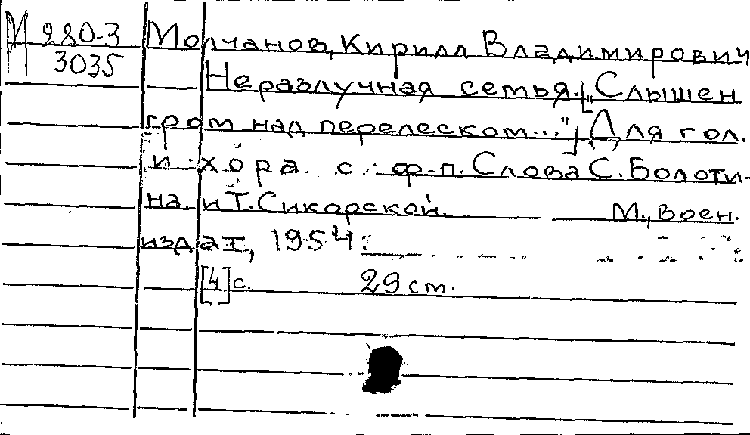 М 280-3
3035
Молчанов, Кирилл Владимирович
Неразлучная семья. ["Слышен
гром над перелеском..."] Для гол.
и хора с ф-п. Слова С. Болоти-
на и Т. Сикорской. М., Воен.
издат, 1954.
[4] с. 29 см.